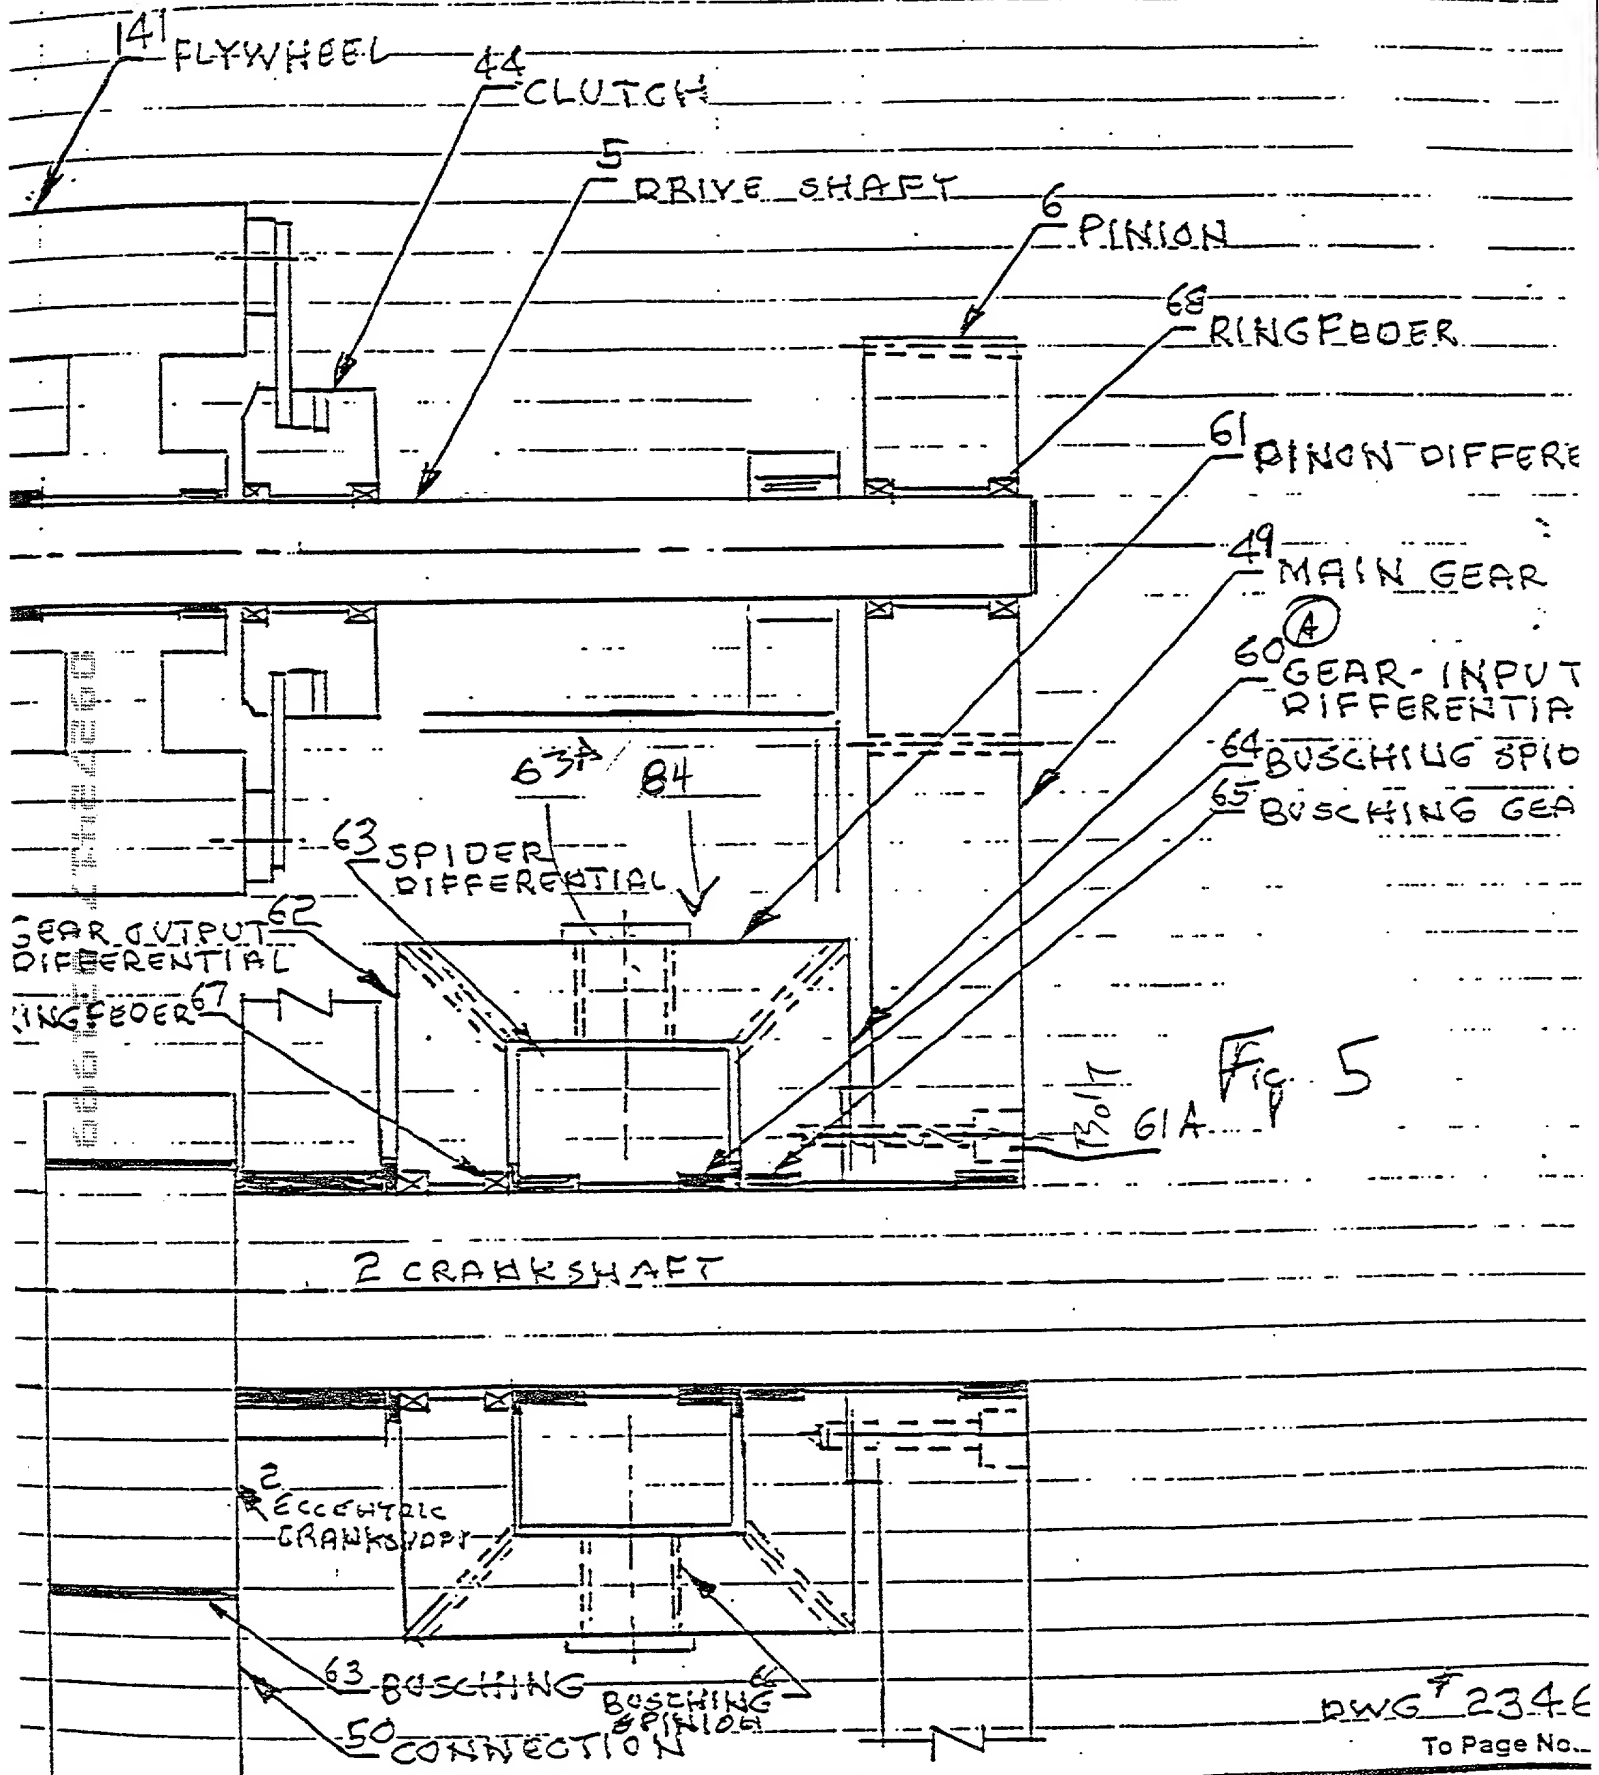 141 FLYWHEEL
44 CLUTCH
5 DRIVE SHAFT
6 PINION
68 RINGFEDER
61 PINON DIFFERE
49 MAIN GEAR
A
60 GEAR-INPUT
DIFFERENTIA
64 BUSCHING SPID
65 BUSCHING GEA
63A 84
63 SPIDER
DIFFERENTIAL
62
GEAR OUTPUT
DIFFERENTIAL
INGFEDER 67
Fig. 5
Bolt 61A
2 CRANKSHAFT
2
ECCENTRIC
CRANKSHAFT
63 BUSCHING
BUSCHING
PINION
50 CONNECTION
DWG # 2346
To Page No.